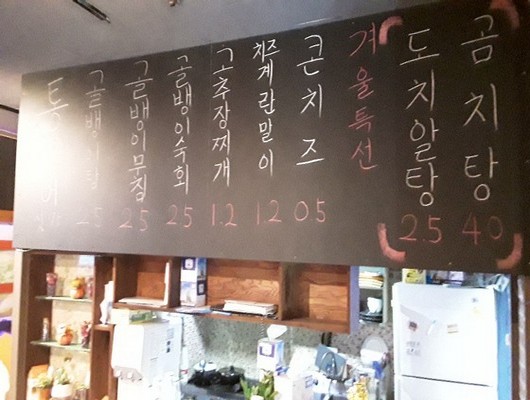 곰치탕 4.0
도치알탕 2.5
겨울특선
콘치즈 0.5
치즈계란말이 1.2
고추장찌개 1.2
골뱅이숙회 2.5
골뱅이무침 2.5
골뱅이탕 2.5